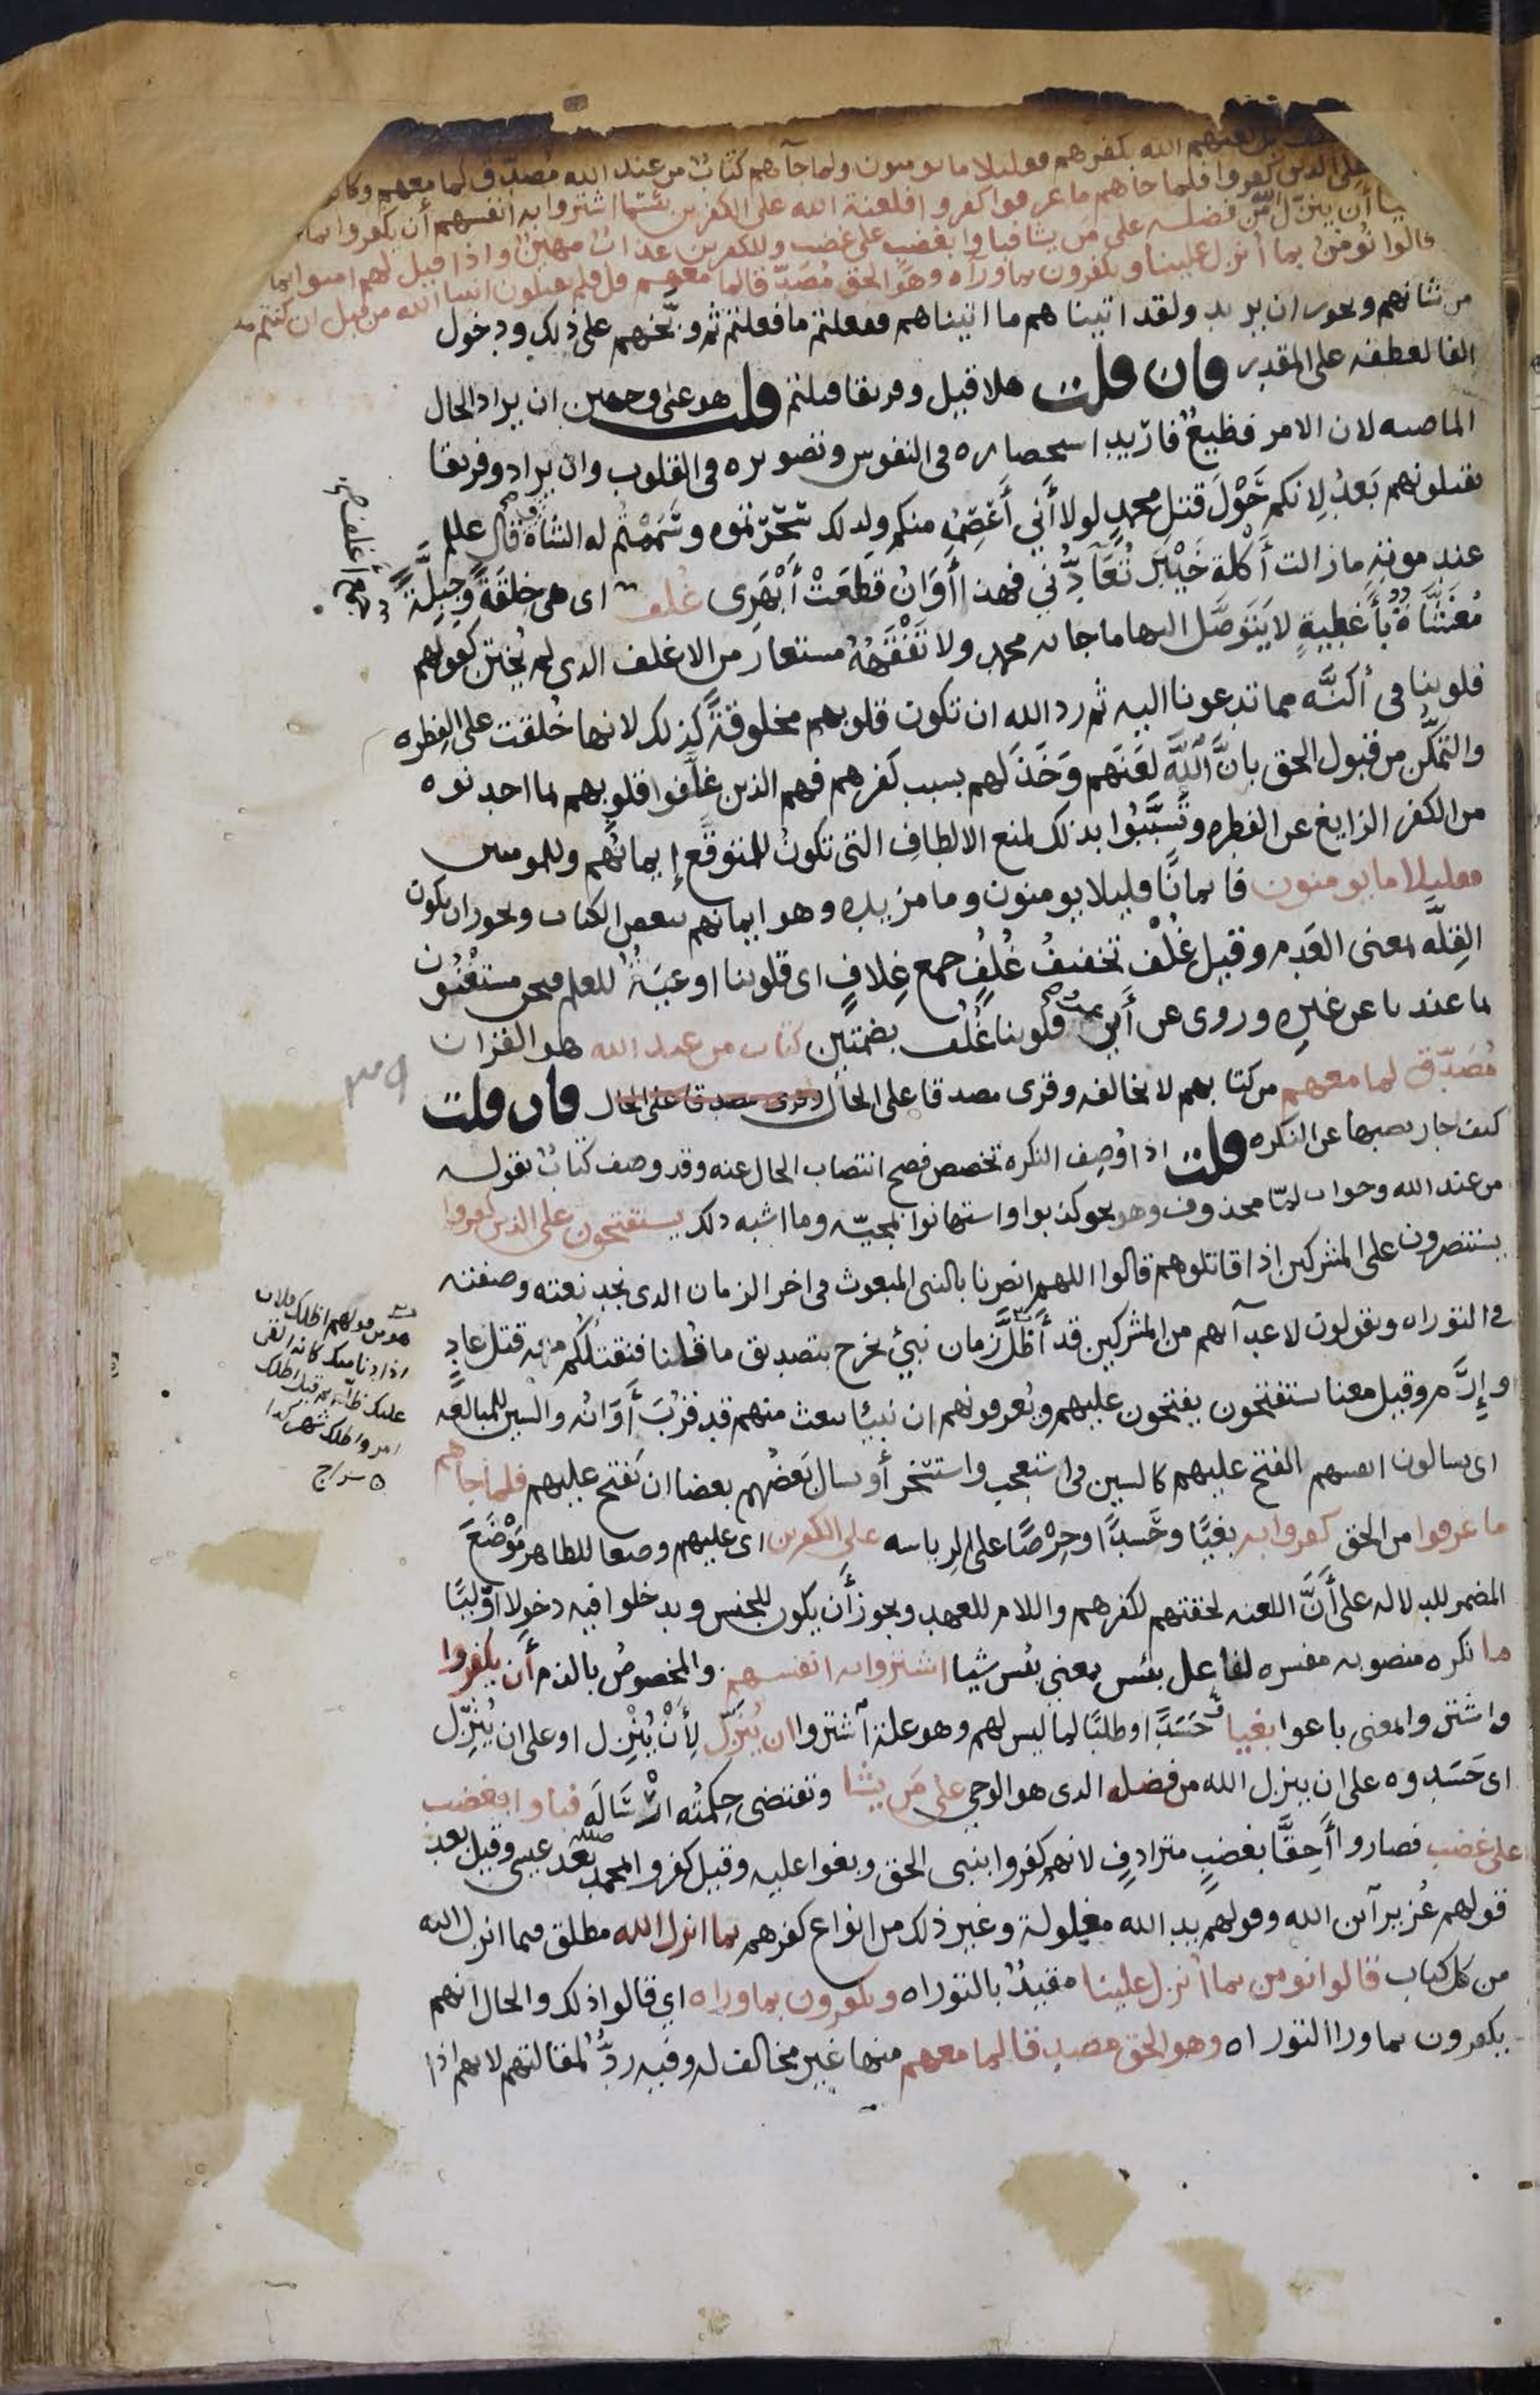 لعنهم الله بكفرهم فقليلا ما يومنون ولما جآهم كتابٌ من عند الله مُصدّق لما معهم وكا
على الذين كفروا فلما جاهم ما عرفوا كفروا فلعنة الله على الكفرين بئسما اشتروا به انفسهم أن يكفروا بما
أن ينزّل من فضله على من يشا فباوا بغضب على غضب وللكفرين عذاب مهين واذا قيل لهم امنوا بما
قالوا نُومن بما أنزل علينا ويكفرون بما ورآه وهو الحق مُصَدّقا لما معهم قل فلم تقتلون انبيا الله من قبل ان كنتم
من شانهم ويجوز ان يريد ولقد اتيناهم ما اتيناهم ففعلتم ما فعلتم ثم وبّخهم على ذلك ودخول
الفا لعطفه على المقدر فان قلت هلا قيل وفريقا قتلتم قلت هو على وجهين ان يراد الحال
الماضيه لان الامر فظيعٌ فارِيد استحضاره فى النفوس وتصويره فى القلوب وان يراد وفريقا
تقتلونهم بَعدُ لانكم حَوْلَ قتل محمدٍ لولا أَنِّي أَعْصِمُه منكم ولذلك سَحَرْتموه وسَمَمْتُم له الشاة وقال علم
عند موته ما زالت أَكْلَة خَيْبَرَ تُعَآدُّنى فهذا أَوَانُ قَطَعَتْ أَبْهَرِى غُلْف اى هى خِلقَةً وجِبِلَّةً
مُغَشَّاةٌ بأَغْطِيةٍ لا يَتَوصَّل اليها ما جا به محمد ولا تَفْقَهُهُ مستعار من الاغلف الذى لم يُختَن كقولهم
قلوبنا فى أكنَّه مما تدعونا اليه ثم رد الله ان تكون قلوبهم مخلوقةً كذلك لانها خُلقت على الفِطره
والتمكُّن من قبول الحق بانَّ اللَّهَ لَعَنَهم وَخَذَلهم بسبب كَفرهم فهم الذين غلَّفوا قلوبهم بما احدثوه
من الكفر الزايغ عن الفطره وتَسَبَّبُوا بذلك لمنع الالطافِ التى تكونُ للمتوقَّع إيمانُهم وللمومنين
فقليلا ما يومنون فايمانًا قليلا يومنون وما مزيده وهو ايمانهم ببعض الكتاب ويجوز ان تكون
القِلَّه بمعنى العَدم وقيل غُلْف تخفيفُ غُلُفٍ جمع غِلافٍ اى قلوبنا اوعيَةٌ للعلم فنحن مستغنُون
بما عندنا عن غيرِه وروى عن أبى عمرو قلوبنا غُلُف بضمتين كتاب من عند الله هو القران
مُصَدّق لما معهم من كتابهم لا يخالفه وقرى مصدقا على الحال وقرى مصدقا على الحال فان قلت
كيف جاز نصبها عن النكره قلت اذا وُصِف النكره تخصص فصح انتصاب الحال عنه وقد وصف كتابٌ بقوله
من عند الله وجواب لمّا محذوف وهو نحو كذبوا واستهانوا بمجيّه وما اشبه ذلك يستفتحون على الذين كفروا
يستنصرون على المشركين اذا قاتلوهم قالوا اللهم انصرنا بالنبى المبعوث فى اخر الزمان الذى نجد نعته وصفته
فى التوراه ويقولون لاعدآئهم من المشركين قد أَظَلَّ زمان نبىٍّ يخرج بتصديق ما قُلنا فنقتُلُكم معه قتل عادٍ
وإِرَم وقيل معنا يستفتحون يفتحون عليهم ويُعرفونهم ان نبيًا يبعث منهم قد قرُبَ أَوَانُه والسين للمبالغه
اى يسالون انفسهم الفتح عليهم كالسين فى استعجب واستسخر أو يسال بَعضُهم بعضا ان يَفتح عليهم فلما جآهم
ما عرفوا من الحق كفروا به بغيًا وحَسدًا وحِرْصًا على الرياسه على الكفرين اى عليهم وضعا للظاهر مَوْضِعَ
المضمر للدلاله على أَنَّ اللعنه لحقتهم لكفرهم واللام للعهد ويجوز أَن يكون للجنس ويدخلوا فيه دخولا أوليًا
ما نكره منصوبه مفسره لفاعل بئس بمعنى بئس شيا اشتروا به انفسهم والمخصوصُ بالذم أَن يكفروا
واشتروا بمعنى باعوا بغيا حَسَدًا وطلبًا لما ليس لهم وهو علة اشتروا ان يُنَزِّل لِأَنْ يُنَزِّل او على ان يُنَزِّل
اى حَسَدوه على ان ينزل الله من فضله الذى هو الوحى على مَن يشا وتقتضى حِكمتُه ارْسَالَه فباوا بغضب
على غضب فصاروا أَحِقَّا بغضبٍ مترادفٍ لانهم كفروا بنبى الحق وبغوا عليه وقيل كفروا بمحمد بَعد عيسى وقيل بعد
قولهم عُزير آبن الله وقولهم يد الله مغلولة وغير ذلك من انواع كفرهم بما انزل الله مطلق فيما انزل الله
من كل كتاب قالوا نومن بما أُنزل علينا مقيدٌ بالتوراه ويكفرون بما وراه اي قالوا ذلك والحال انهم
يكفرون بما ورا التوراه وهو الحق مصدقا لما معهم منها غير مخالف له وفيه ردٌّ لمقالتهم لانهم اذا
جمع أغلف
هو من قولهم اظلك فلان
اذا دنا منك كانه القى
عليك ظلّه ثم قيل اظلك
امر واظلك شهر كذا